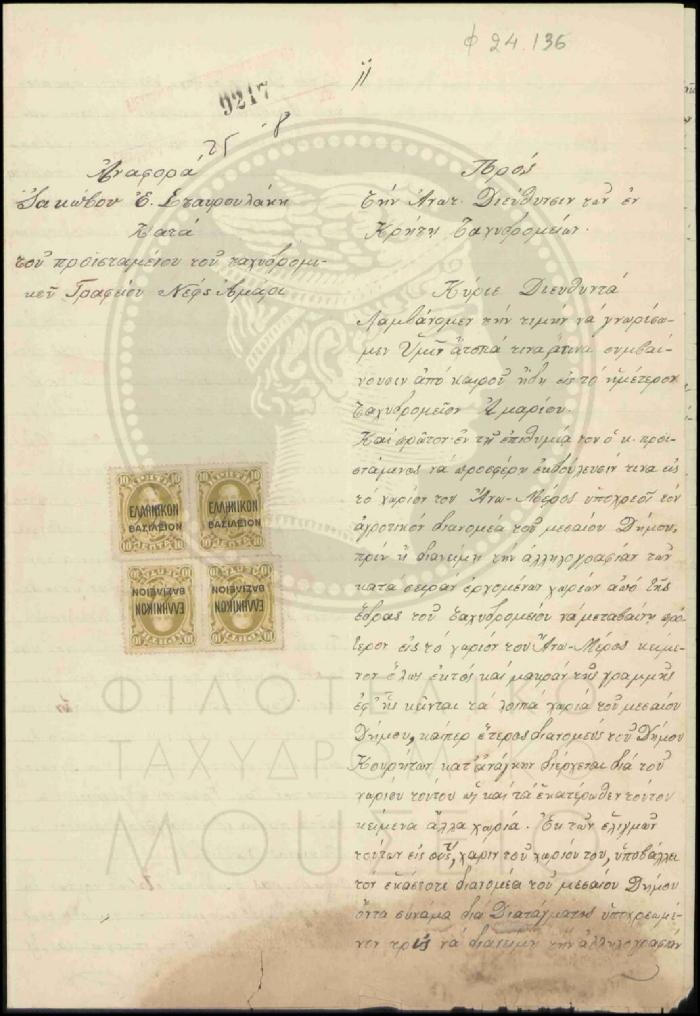 φ 24.136
9217
25 8
Ἀναφορά
Ἰακώβου Ἐ. Σταυρουλάκη
Κατά
τοῦ προϊσταμείου τοῦ ταχυδρομι-
κοῦ Γραφείου Νεφς Ἀμαρι
Πρός
Τὴν Ἀνωτ. Διεύθυνσιν τῶν ἐν
Κρήτῃ Ταχυδρομείων.
Κύριε Διευθυντά
Λαμβάνομεν τὴν τιμὴν νὰ γνωρίσω-
μεν Ὑμῖν ἄτοπά τινα ἅτινα συμβαί-
νουσιν ἀπὸ καιροῦ ἤδη εἰς τὸ ἡμέτερον
Ταχυδρομεῖον Ἀμαρίου.
Καὶ πρῶτον ἐν τῇ ἐπιθυμίᾳ του ὁ κ. προϊ-
στάμενος νὰ προσφέρῃ ἐκδούλευσίν τινα εἰς
τὸ χωρίον του Ἄνω-Μέρος ὑποχρεοῖ τὸν
ἀγροτικὸν διανομέα τοῦ μεσαίου Δήμου,
πρὶν ἢ διανείμῃ τὴν ἀλληλογραφίαν τῶν
κατὰ σειρὰν ἐρχομένων χωρίων ἀπὸ τῆς
ἕδρας τοῦ ταχυδρομείου νὰ μεταβαίνῃ πρό-
τερον εἰς τὸ χωρίον του Ἄνω-Μέρος κείμε-
νον ὅλως ἐκτὸς καὶ μακρὰν τῆς γραμμῆς
ἐφ' ἧς κεῖνται τὰ λοιπὰ χωριὰ τοῦ μεσαίου
Δήμου, καίπερ ἕτερος διανομεὺς τοῦ Δήμου
Κουρήτων κατ' ἀνάγκην διέρχεται διὰ τοῦ
χωρίου τούτου ὡς καὶ τὰ ἑκατέρωθεν τούτου
κείμενα ἄλλα χωρία. Ἐκ τῶν ἑλιγμῶν
τούτων εἰς οὓς, χάριν τοῦ χωρίου του, ὑποβάλλει
τὸν ἑκάστοτε διανομέα τοῦ μεσαίου Δήμου
ὄντα συνάμα διὰ Διατάγματος ὑποχρεωμέ-
νον τρὶς νὰ διανέμῃ τὴν ἀλληλογραφίαν
ΚΡΗΤΗ
ΕΛΛΗΝΙΚΟΝ
ΒΑΣΙΛΕΙΟΝ
10 ΛΕΠΤΑ 10
ΚΡΗΤΗ
ΕΛΛΗΝΙΚΟΝ
ΒΑΣΙΛΕΙΟΝ
10 ΛΕΠΤΑ 10
ΕΛΛΗΝΙΚΟΝ
ΒΑΣΙΛΕΙΟΝ
ΕΛΛΗΝΙΚΟΝ
ΒΑΣΙΛΕΙΟΝ
ΦΙΛΟΤΕΛΙΚΟ
ΤΑΧΥΔΡΟΜΙΚΟ
ΜΟΥΣΕΙΟ